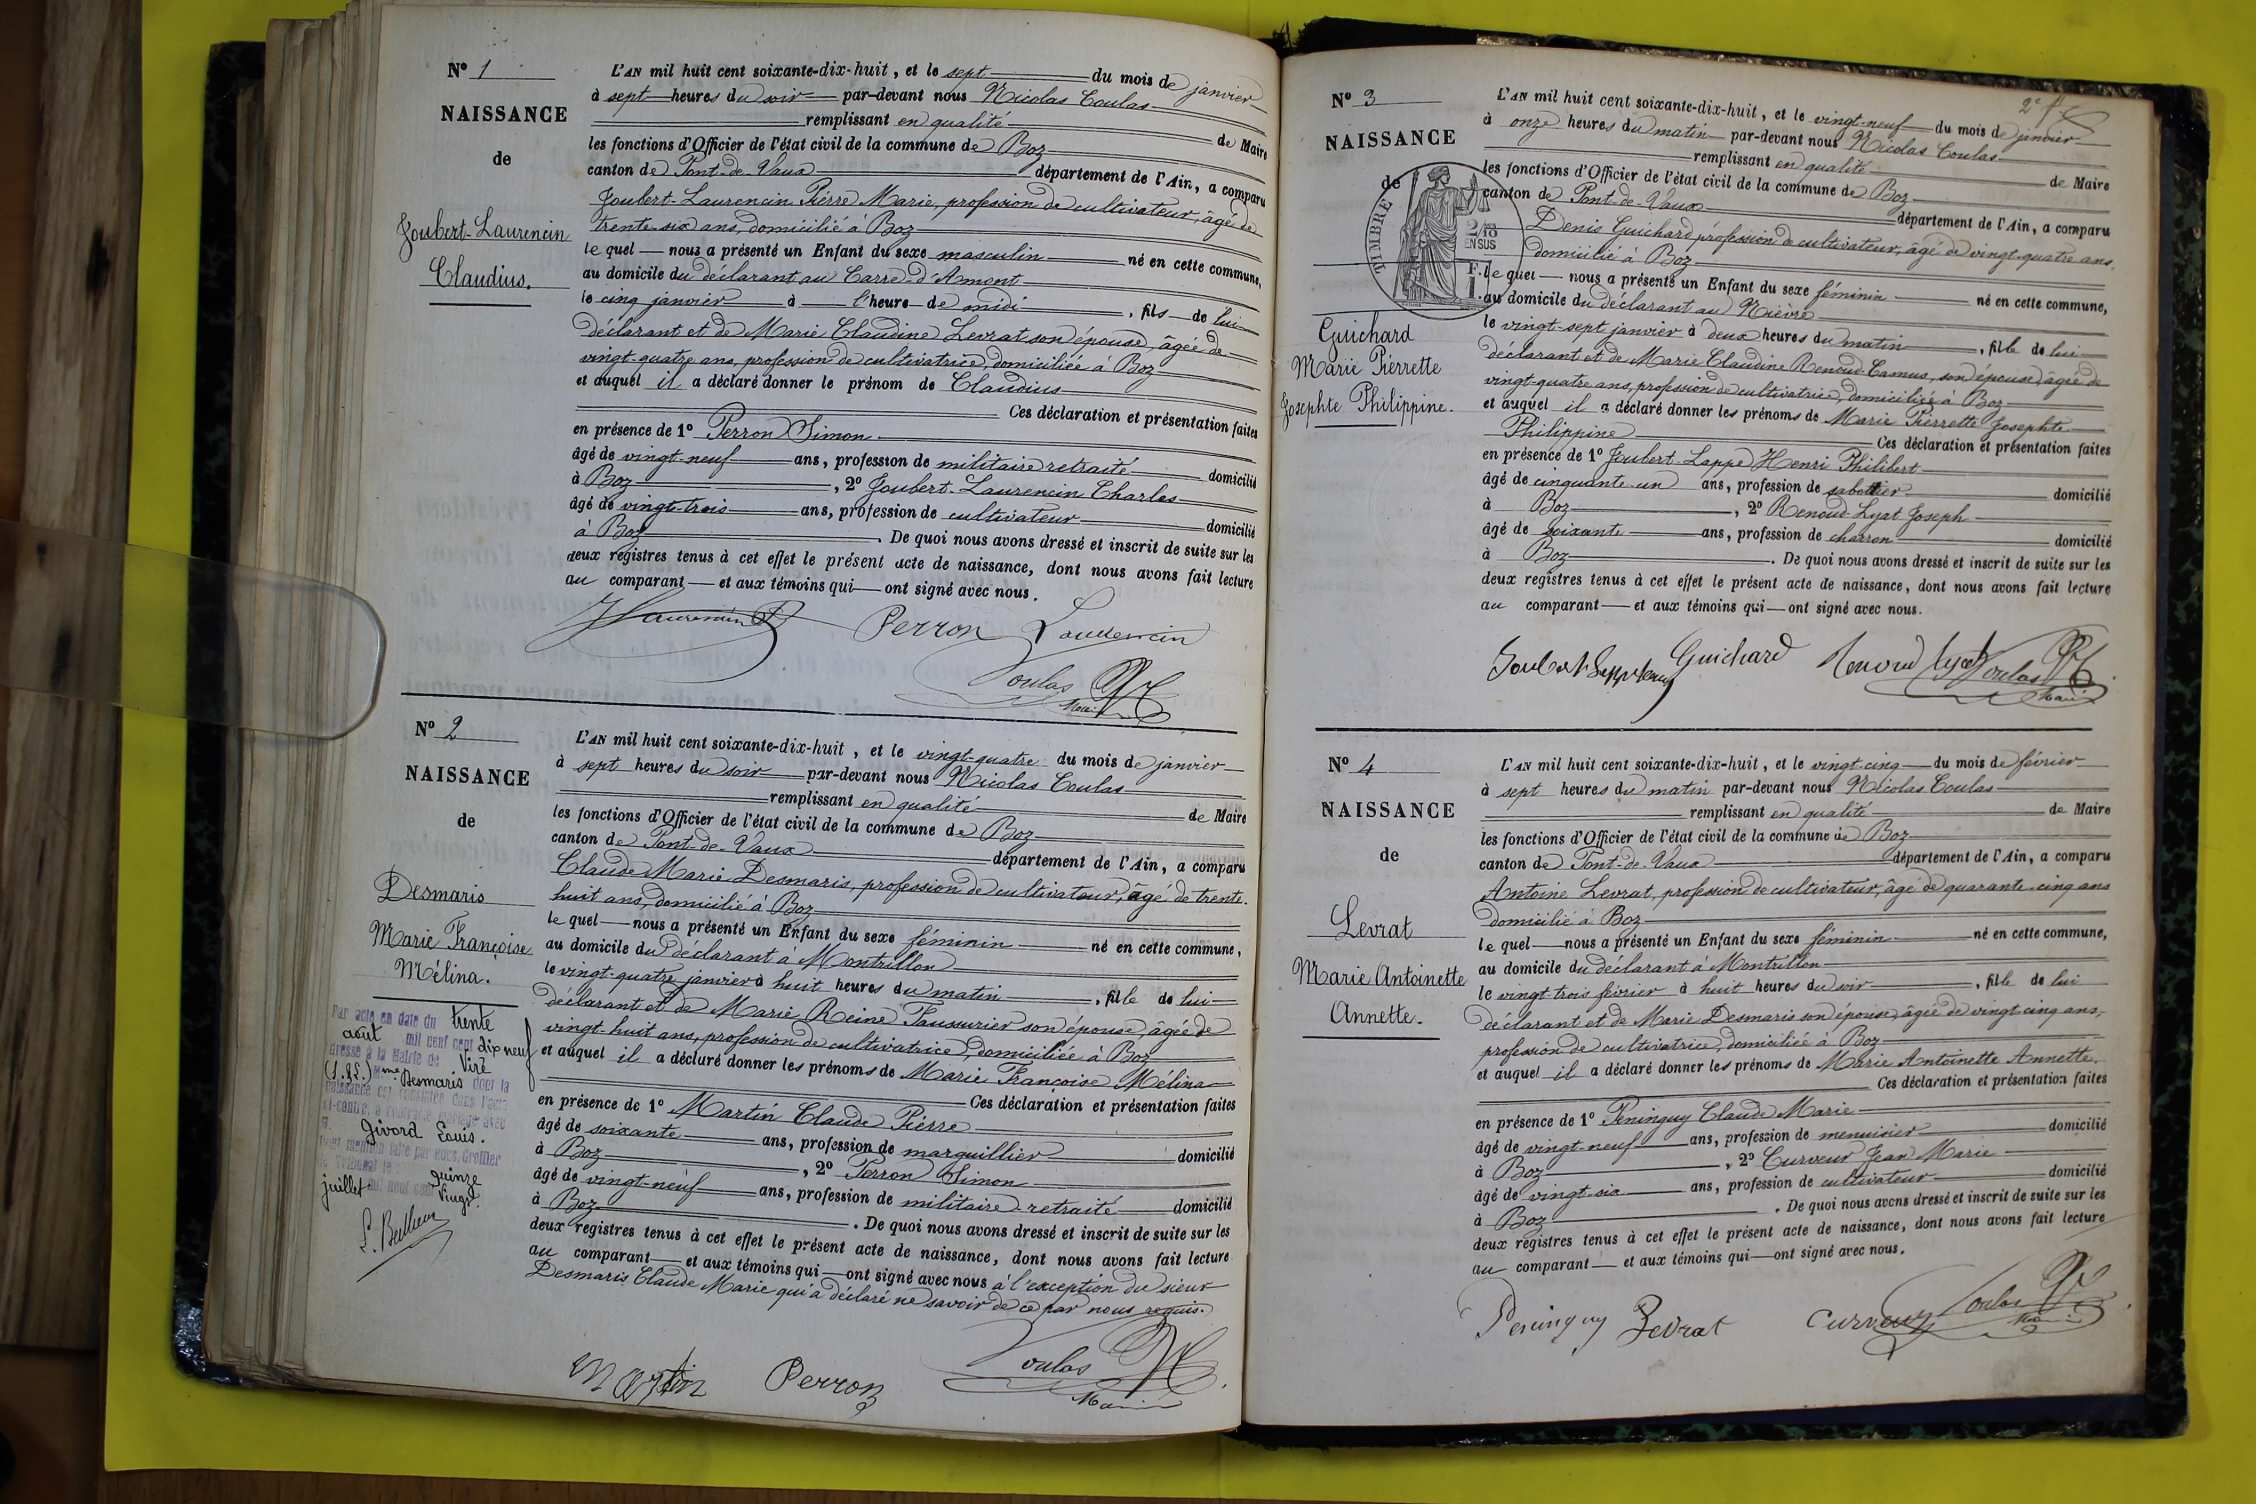 N° 1
NAISSANCE
de
Joubert-Laurencin
Claudius.
L'AN mil huit cent soixante-dix-huit, et le sept du mois de janvier
à sept heures du soir par-devant nous Nicolas Coulas
remplissant en qualité de Maire
les fonctions d'Officier de l'état civil de la commune de Boz
canton de Pont-de-Vaux département de l'Ain, a comparu
Joubert-Laurencin Pierre Marie, profession de cultivateur, âgé de
trente-six ans, domicilié à Boz
le quel nous a présenté un Enfant du sexe masculin né en cette commune,
au domicile du déclarant au Carre-d'Amont
le cinq janvier à l'heure de midi, fils de lui
déclarant et de Marie Claudine Levrat son épouse, âgée de
vingt-quatre ans, profession de cultivatrice, domiciliée à Boz
et auquel il a déclaré donner le prénom de Claudius
Ces déclaration et présentation faites
en présence de 1° Perron Simon
âgé de vingt-neuf ans, profession de militaire retraité domicilié
à Boz, 2° Joubert-Laurencin Charles
âgé de vingt-trois ans, profession de cultivateur domicilié
à Boz. De quoi nous avons dressé et inscrit de suite sur les
deux registres tenus à cet effet le présent acte de naissance, dont nous avons fait lecture
au comparant et aux témoins qui ont signé avec nous.
Perron
Coulas
Maire
N° 2
NAISSANCE
de
Desmaris
Marie Françoise
Mélina.
Par acte en date du trente
août mil neuf cent dix neuf
dressé à la Mairie de Viré
Mme Desmaris dont la
naissance est constatée dans l'acte
ci-contre, a contracté mariage avec
M. Givord Louis.
Pour mention faite par nous, Greffier
du Tribunal le quinze
juillet mil neuf cent vingt.
L'AN mil huit cent soixante-dix-huit, et le vingt-quatre du mois de janvier
à sept heures du soir par-devant nous Nicolas Coulas
remplissant en qualité de Maire
les fonctions d'Officier de l'état civil de la commune de Boz
canton de Pont-de-Vaux département de l'Ain, a comparu
Claude Marie Desmaris, profession de cultivateur, âgé de trente-
huit ans, domicilié à Boz
le quel nous a présenté un Enfant du sexe féminin né en cette commune,
au domicile du déclarant à Montrillon
le vingt-quatre janvier à huit heures du matin, fille de lui
déclarant et de Marie Reine son épouse, âgée de
vingt-huit ans, profession de cultivatrice, domiciliée à Boz
et auquel il a déclaré donner les prénoms de Marie Françoise Mélina
Ces déclaration et présentation faites
en présence de 1° Martin Claude Pierre
âgé de soixante ans, profession de marguillier domicilié
à Boz, 2° Perron Simon
âgé de vingt-neuf ans, profession de militaire retraité domicilié
à Boz. De quoi nous avons dressé et inscrit de suite sur les
deux registres tenus à cet effet le présent acte de naissance, dont nous avons fait lecture
au comparant et aux témoins qui ont signé avec nous à l'exception du sieur
Desmaris Claude Marie qui a déclaré ne savoir de ce par nous requis.
Martin Perron Coulas
Maire
N° 3
NAISSANCE
de
TIMBRE
2/10
EN SUS
Guichard
Marie Pierrette
Josephte Philippine.
L'AN mil huit cent soixante-dix-huit, et le vingt-neuf du mois de janvier
à onze heures du matin par-devant nous Nicolas Coulas
remplissant en qualité de Maire
les fonctions d'Officier de l'état civil de la commune de Boz
canton de Pont-de-Vaux département de l'Ain, a comparu
Denis Guichard profession de cultivateur, âgé de vingt-quatre ans,
domicilié à Boz
le quel nous a présenté un Enfant du sexe féminin né en cette commune,
au domicile du déclarant au Nièvre
le vingt-sept janvier à deux heures du matin, fille de lui
déclarant et de Marie Claudine Renoud-Camus, son épouse, âgée de
vingt-quatre ans, profession de cultivatrice, domiciliée à Boz
et auquel il a déclaré donner les prénoms de Marie Pierrette Josephte
Philippine Ces déclaration et présentation faites
en présence de 1° Joubert-Lappe Henri Philibert
âgé de cinquante-un ans, profession de sabottier domicilié
à Boz, 2° Renoud-Lyat Joseph
âgé de soixante ans, profession de charron domicilié
à Boz. De quoi nous avons dressé et inscrit de suite sur les
deux registres tenus à cet effet le présent acte de naissance, dont nous avons fait lecture
au comparant et aux témoins qui ont signé avec nous.
Guichard Renoud Lyat Coulas
Maire
N° 4
NAISSANCE
de
Levrat
Marie Antoinette
Annette.
L'AN mil huit cent soixante-dix-huit, et le vingt-cinq du mois de février
à sept heures du matin par-devant nous Nicolas Coulas
remplissant en qualité de Maire
les fonctions d'Officier de l'état civil de la commune de Boz
canton de Pont-de-Vaux département de l'Ain, a comparu
Antoine Levrat, profession de cultivateur, âgé de quarante-cinq ans
domicilié à Boz
le quel nous a présenté un Enfant du sexe féminin né en cette commune,
au domicile du déclarant à Montrillon
le vingt-trois février à huit heures du soir, fille de lui
déclarant et de Marie Desmaris son épouse, âgée de vingt-cinq ans,
profession de cultivatrice, domiciliée à Boz
et auquel il a déclaré donner les prénoms de Marie Antoinette Annette.
Ces déclaration et présentation faites
en présence de 1° Peninguy Claude Marie
âgé de vingt-neuf ans, profession de menuisier domicilié
à Boz, 2° Curveur Jean Marie
âgé de vingt-six ans, profession de cultivateur domicilié
à Boz. De quoi nous avons dressé et inscrit de suite sur les
deux registres tenus à cet effet le présent acte de naissance, dont nous avons fait lecture
au comparant et aux témoins qui ont signé avec nous.
Peninguy Levrat Curveur Coulas
Maire